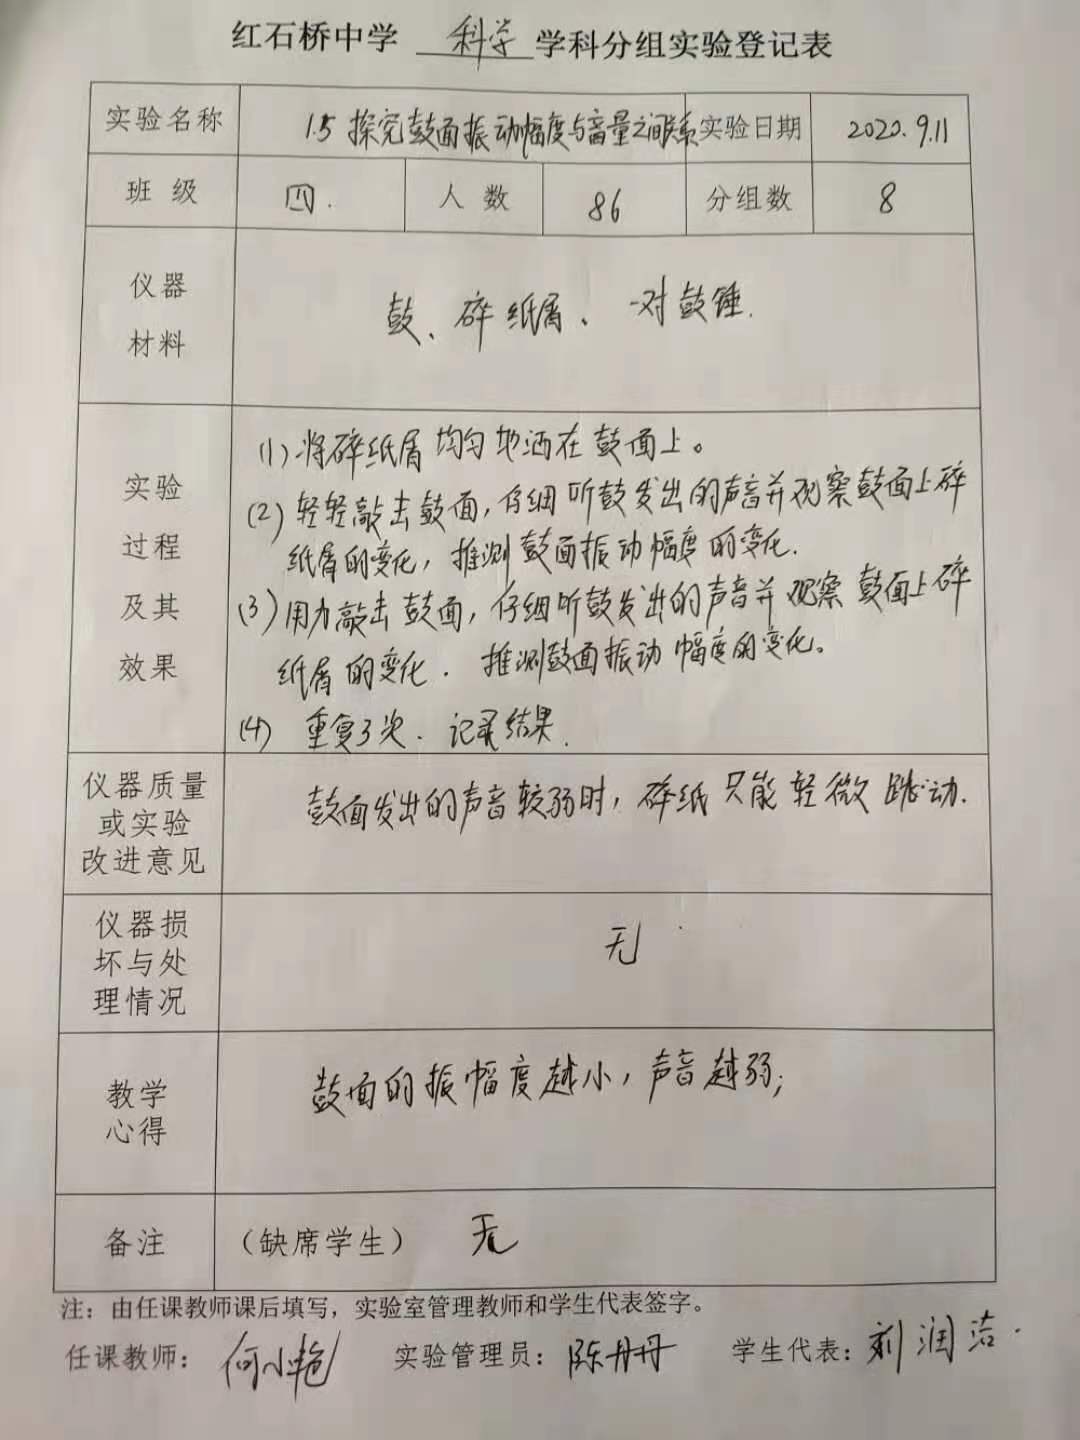 红石桥中学 科学 学科分组实验登记表
实验名称 1.5 探究鼓面振动幅度与音量之间关系 实验日期 2020.9.11
班 级 四. 人 数 86 分组数 8
仪器
材料
鼓、碎纸屑、一对鼓锤.
实验
过程
及其
效果
(1)将碎纸屑均匀地洒在鼓面上。
(2)轻轻敲击鼓面,仔细听鼓发出的声音并观察鼓面上碎
纸屑的变化,推测鼓面振动幅度的变化.
(3)用力敲击鼓面,仔细听鼓发出的声音并观察鼓面上碎
纸屑的变化.推测鼓面振动幅度的变化。
(4) 重复3次.记录结果.
仪器质量
或实验
改进意见
鼓面发出的声音较弱时,碎纸只能轻微跳动.
仪器损
坏与处
理情况
无
教学
心得
鼓面的振幅度越小,声音越弱;
备注 (缺席学生) 无
注:由任课教师课后填写,实验室管理教师和学生代表签字。
任课教师: 何小艳 实验管理员: 陈丹丹 学生代表: 刘润洁.